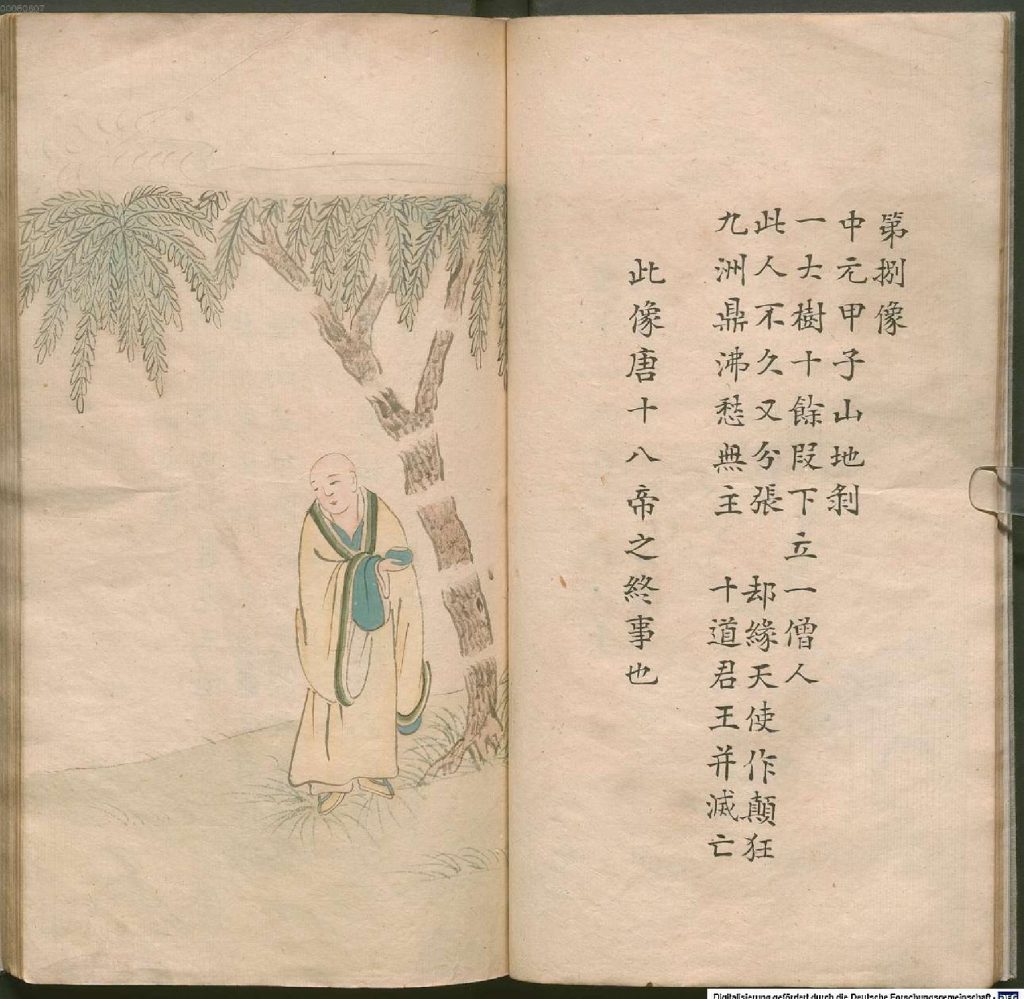 00060807
第捌像
中元甲子山地剝
一大樹十餘段下立一僧人
此人不久又分張 却緣天使作顛狂
九洲鼎沸愁無主 十道君王并滅亡
此像唐十八帝之終事也
Digitalisierung gefördert durch die Deutsche Forschungsgemeinschaft - DFG